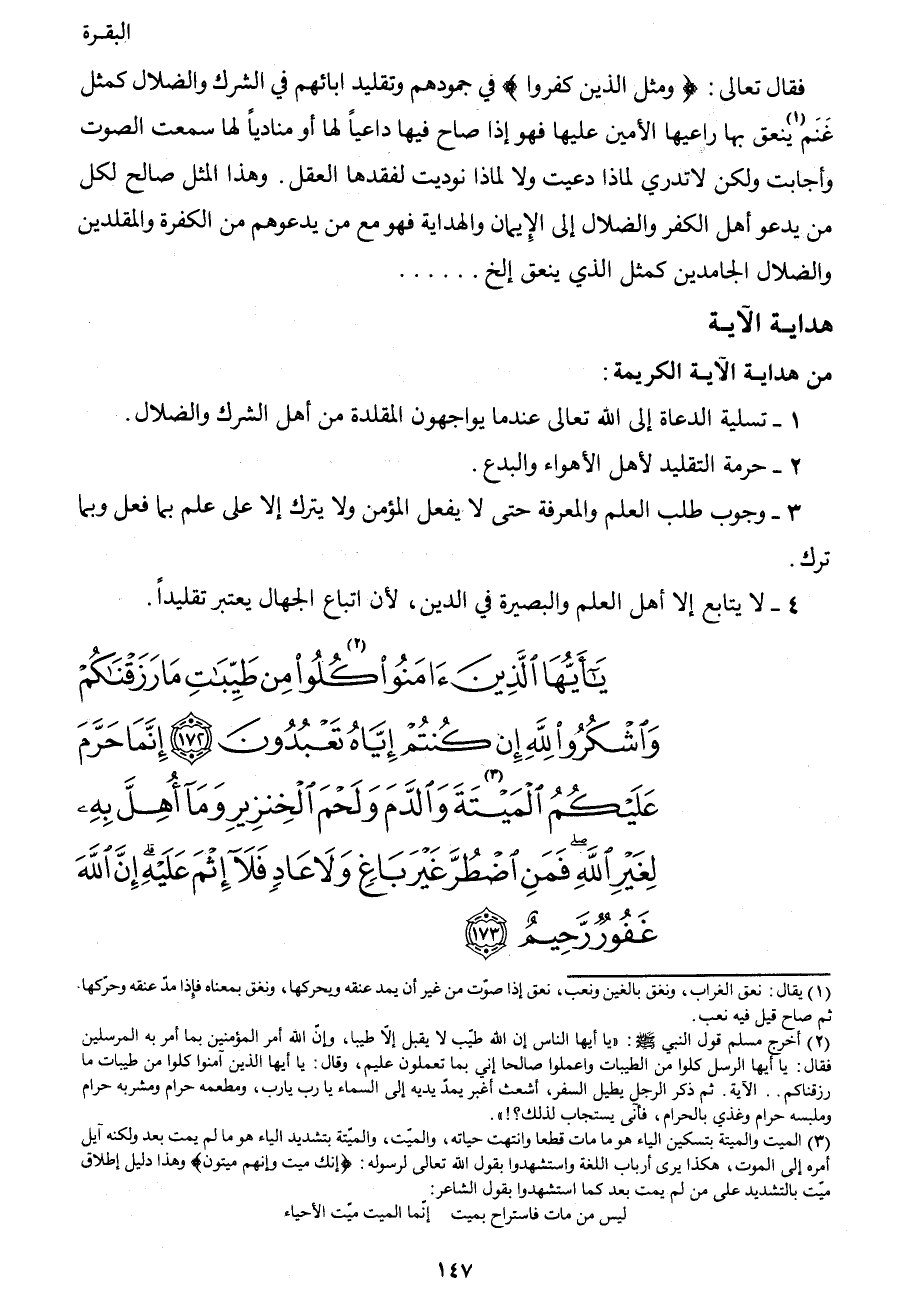 البقرة
فقال تعالى: ﴿ ومثل الذين كفروا ﴾ في جمودهم وتقليد ابائهم في الشرك والضلال كمثل
غَنَم(١) يَنعق بها راعيها الأمين عليها فهو إذا صاح فيها داعياً لها أو منادياً لها سمعت الصوت
وأجابت ولكن لاتدري لماذا دعيت ولا لماذا نوديت لفقدها العقل. وهذا المثل صالح لكل
من يدعو أهل الكفر والضلال إلى الإيمان والهداية فهو مع من يدعوهم من الكفرة والمقلدين
والضلال الجامدين كمثل الذي ينعق إلخ . . . . . .
هدايـة الآيـة
من هدايـة الآيـة الكريمة:
١ ـ تسلية الدعاة إلى الله تعالى عندما يواجهون المقلدة من أهل الشرك والضلال.
٢ ـ حرمة التقليد لأهل الأهواء والبدع.
٣ ـ وجوب طلب العلم والمعرفة حتى لا يفعل المؤمن ولا يترك إلا على علم بما فعل وبما
ترك.
٤ ـ لا يتابع إلا أهل العلم والبصيرة في الدين، لأن اتباع الجهال يعتبر تقليداً.
يَٰٓأَيُّهَا ٱلَّذِينَ ءَامَنُواْ كُلُواْ(٢) مِن طَيِّبَٰتِ مَا رَزَقْنَٰكُمْ
وَٱشْكُرُواْ لِلَّهِ إِن كُنتُمْ إِيَّاهُ تَعْبُدُونَ ﴿١٧٢﴾ إِنَّمَا حَرَّمَ
عَلَيْكُمُ ٱلْمَيْتَةَ(٣) وَٱلدَّمَ وَلَحْمَ ٱلْخِنزِيرِ وَمَآ أُهِلَّ بِهِۦ
لِغَيْرِ ٱللَّهِۖ فَمَنِ ٱضْطُرَّ غَيْرَ بَاغٍ وَلَا عَادٍ فَلَآ إِثْمَ عَلَيْهِۚ إِنَّ ٱللَّهَ
غَفُورٌ رَّحِيمٌ ﴿١٧٣﴾
(١) يقال: نعق الغراب، ونغق بالغين ونعب، نعق إذا صوّت من غير أن يمد عنقه ويحركها، ونغق بمعناه فإذا مدّ عنقه وحرّكها.
ثم صاح قيل فيه نعب.
(٢) أخرج مسلم قول النبي ﷺ: «يا أيها الناس إن الله طيّب لا يقبل إلّا طيبا، وإنّ الله أمر المؤمنين بما أمر به المرسلين
فقال: يا أيها الرسل كلوا من الطيبات واعملوا صالحا إني بما تعملون عليم، وقال: يا أيها الذين آمنوا كلوا من طيبات ما
رزقناكم.. الآية. ثم ذكر الرجل يطيل السفر، أشعث أغبر يمدّ يديه إلى السماء يا رب يارب، ومطعمه حرام ومشربه حرام
وملبسه حرام وغذي بالحرام، فأنّى يستجاب لذلك؟!».
(٣) الميت والميتة بتسكين الياء هو ما مات قطعا وانتهت حياته، والميّت، والميّتة بتشديد الياء هو ما لم يمت بعد ولكنه آيل
أمره إلى الموت، هكذا يرى أرباب اللغة واستشهدوا بقول الله تعالى لرسوله: ﴿إنك ميت وإنهم ميتون﴾ وهذا دليل إطلاق
ميّت بالتشديد على من لم يمت بعد كما استشهدوا بقول الشاعر:
ليس من مات فاستراح بميت إنّما الميت ميّت الأحياء
١٤٧